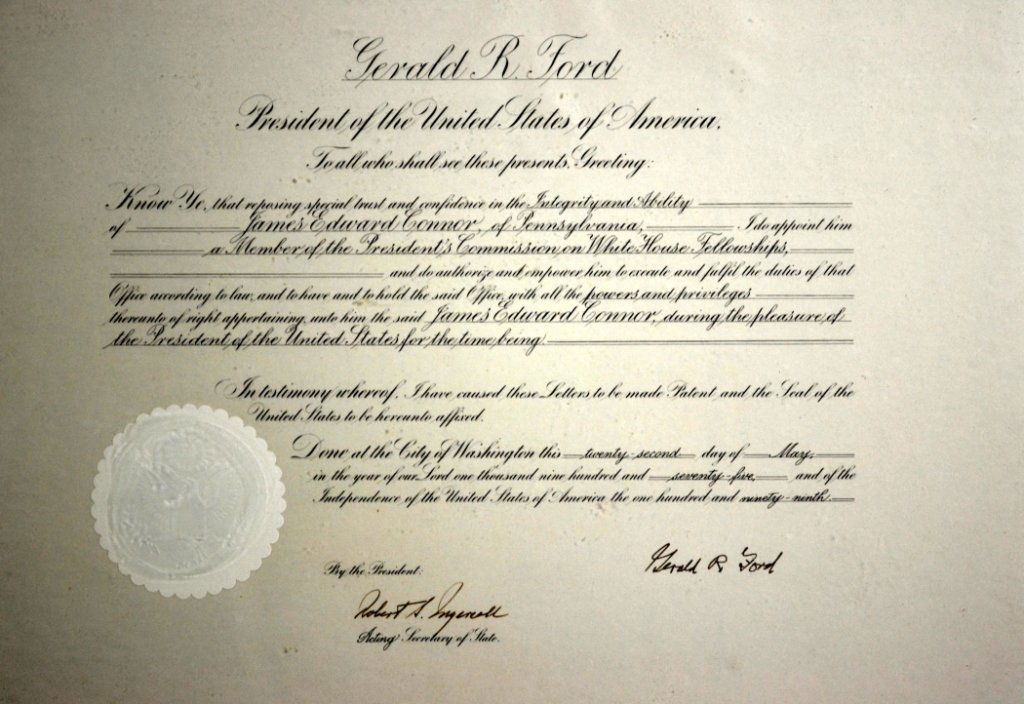 Gerald R. Ford
President of the United States of America.
To all who shall see these presents, Greeting:
Know Ye, that reposing special trust and confidence in the Integrity and Ability
of James Edward Connor, of Pennsylvania, I do appoint him
a Member of the President's Commission on White House Fellowships,
and do authorize and empower him to execute and fulfil the duties of that
Office according to law, and to have and to hold the said Office, with all the powers and privileges
thereunto of right appertaining, unto him the said James Edward Connor, during the pleasure of
the President of the United States for the time being.
In testimony whereof, I have caused these Letters to be made Patent and the Seal of the
United States to be hereunto affixed.
Done at the City of Washington this twenty-second day of May,
in the year of our Lord one thousand nine hundred and seventy-five, and of the
Independence of the United States of America the one hundred and ninety-ninth.
Gerald R. Ford
By the President:
Robert S. Ingersoll
Acting Secretary of State.